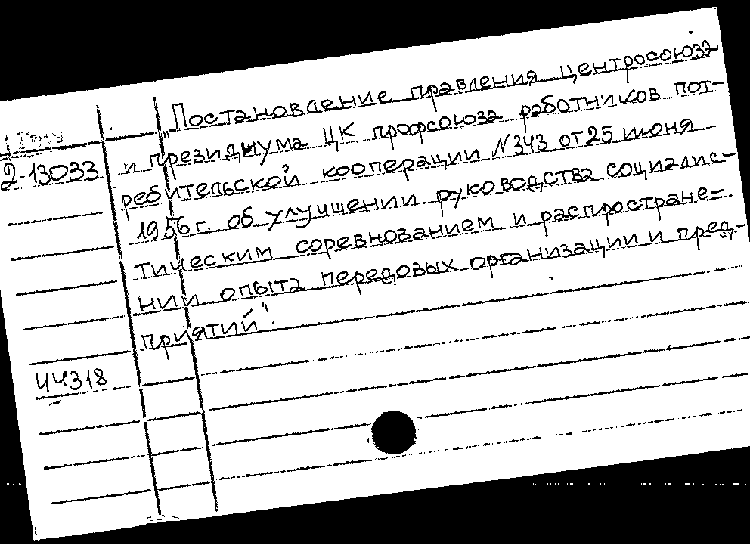 „Постановление правления центросоюза
и президиума ЦК профсоюза работников пот-
2-13033
ребительской кооперации N343 от 25 июня
1956 г. об улучшении руководства социалис-
тическим соревнованием и распростране-
нии опыта передовых организации и пред-
приятий".
44318